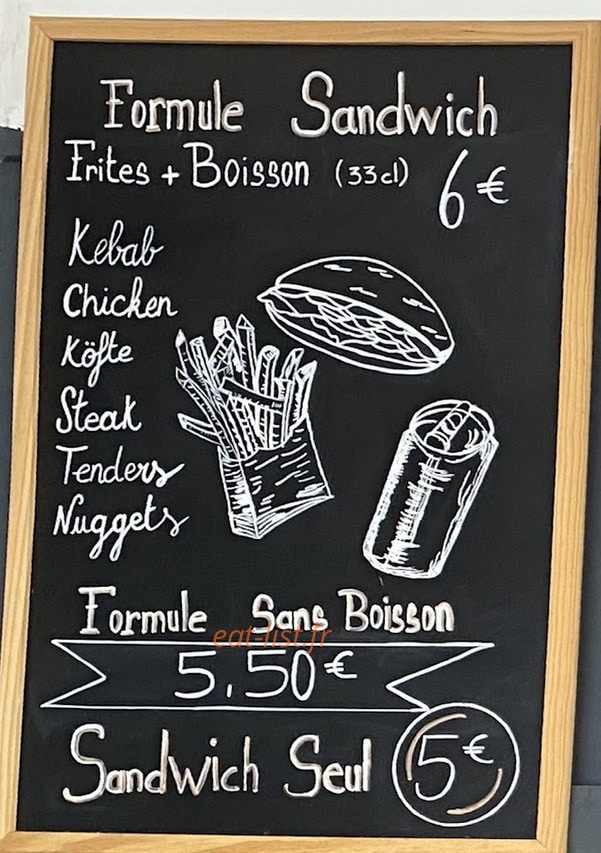 Formule Sandwich
Frites + Boisson (33cl) 6€
Kebab
Chicken
Köfte
Steak
Tenders
Nuggets
Formule Sans Boisson
eat-list.fr
5.50€
Sandwich Seul 5€